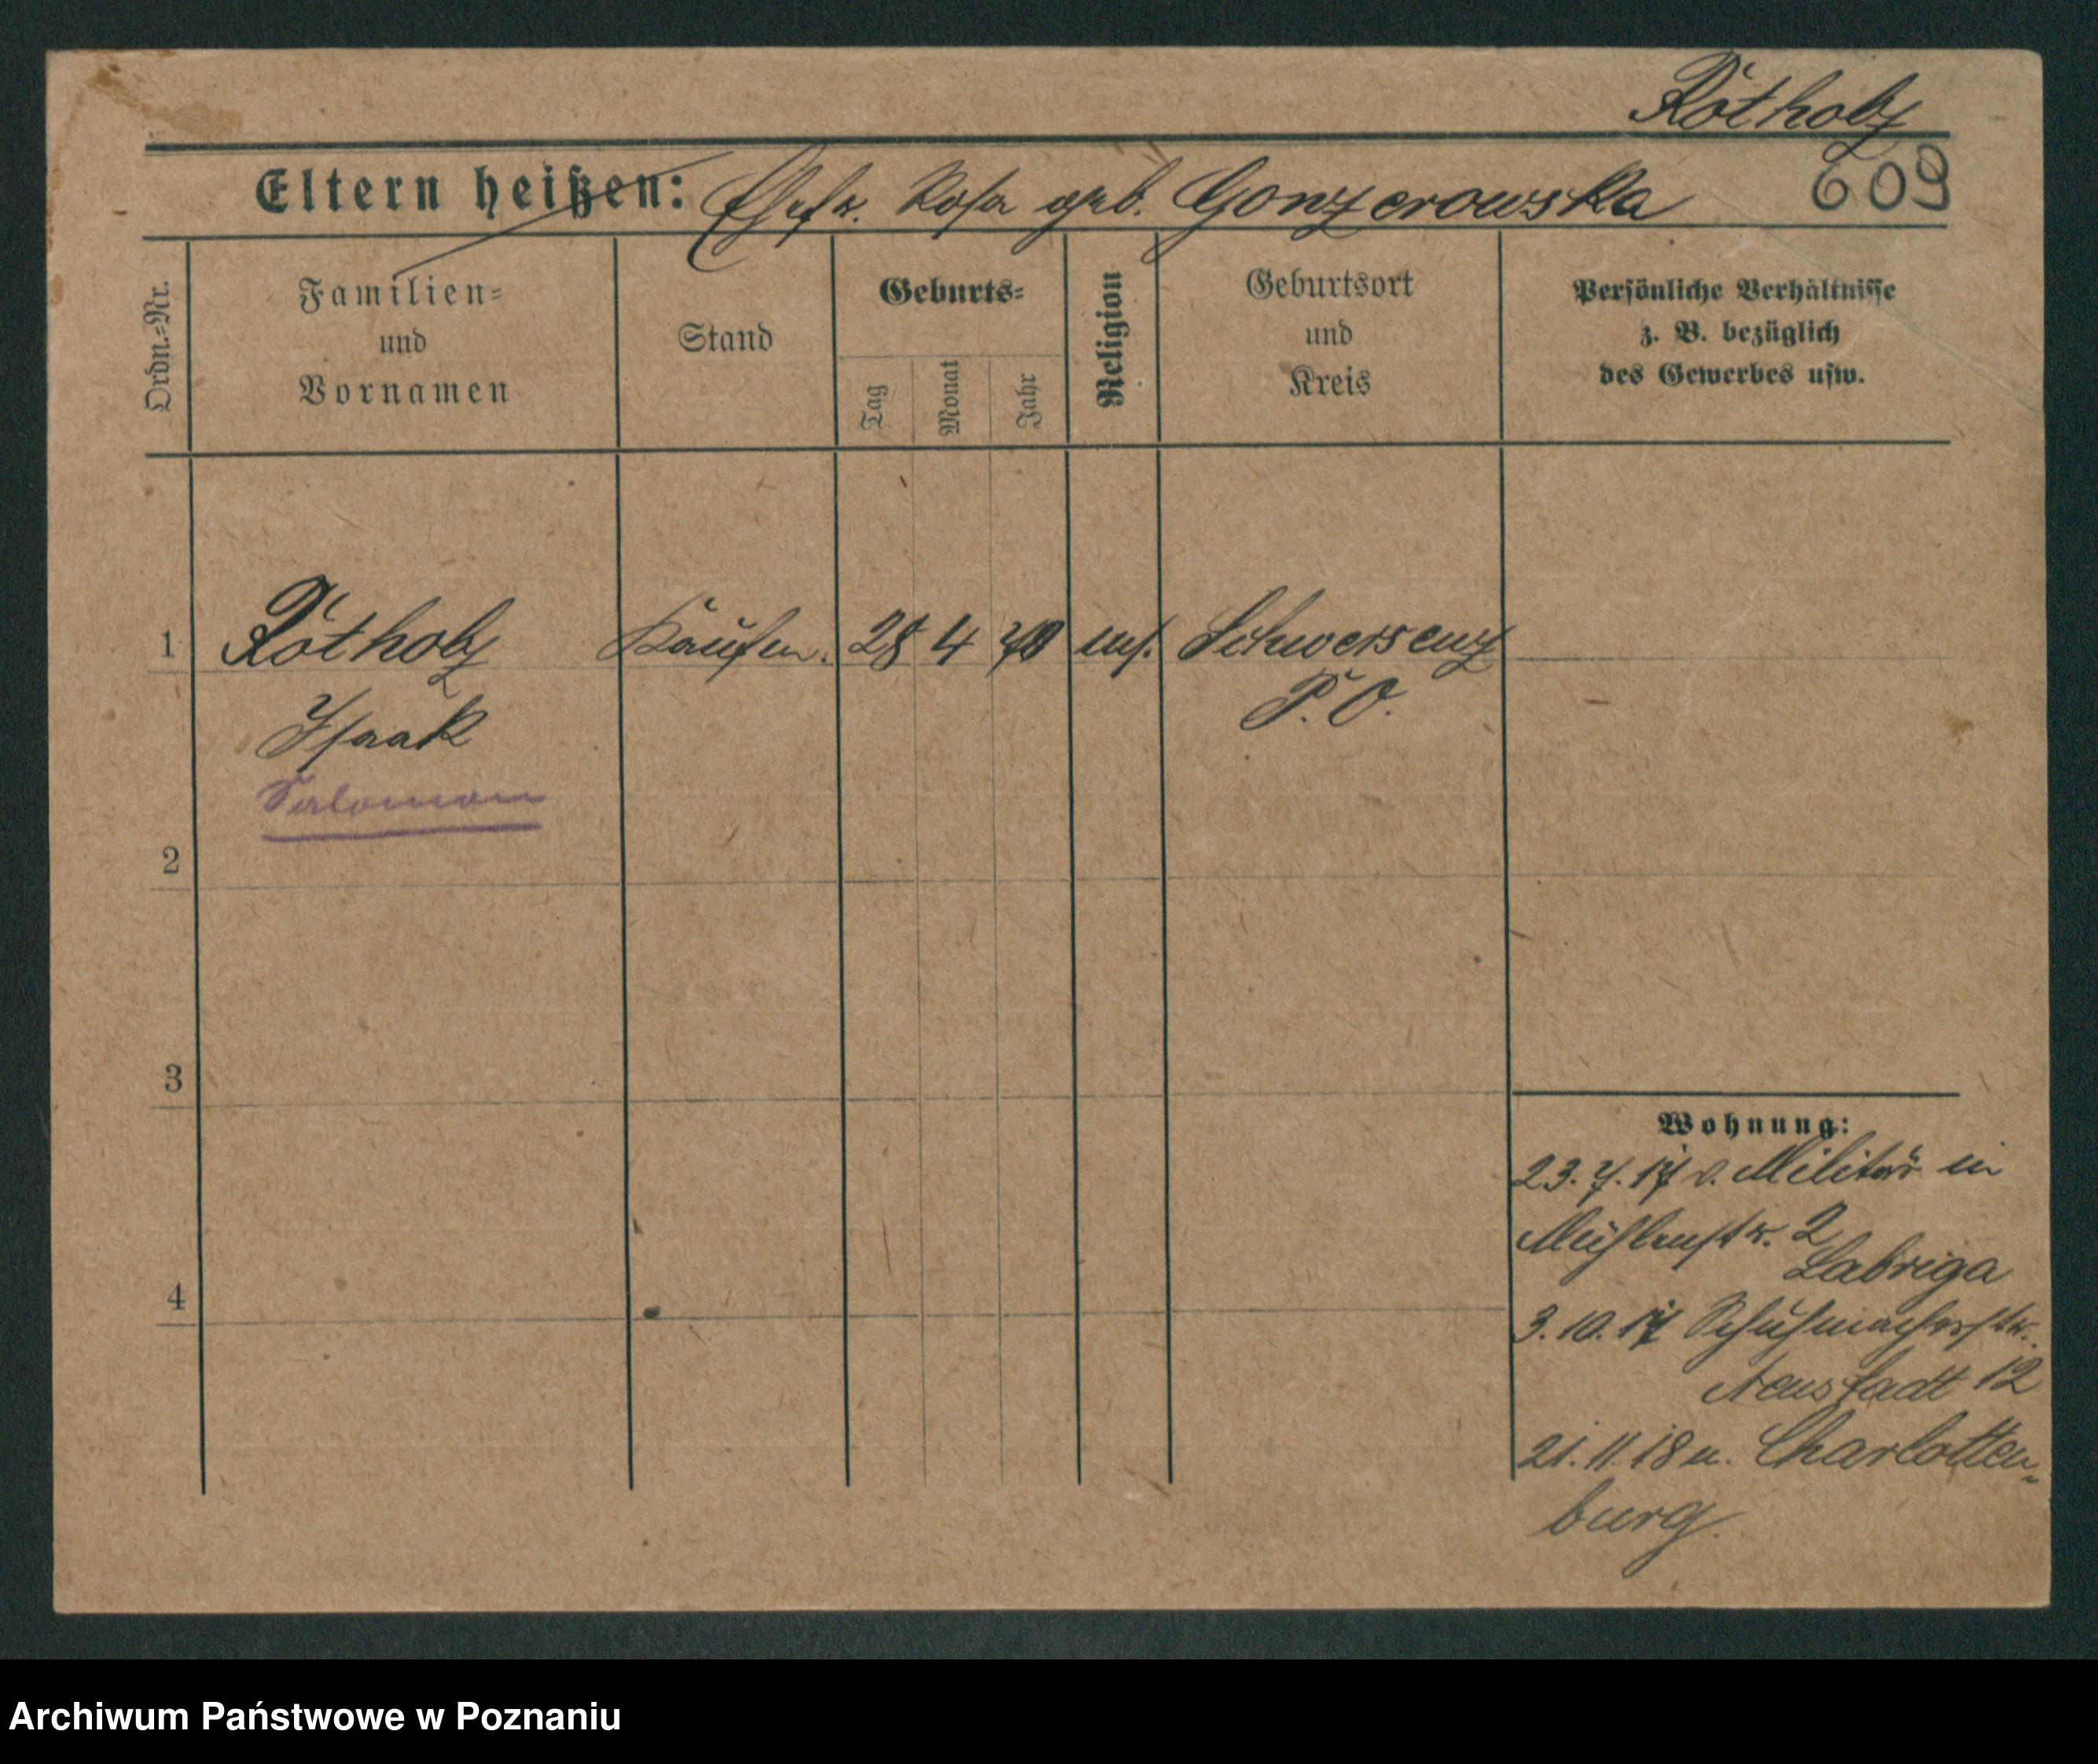 Rothholz
609
Eltern heißen: Ehefr. Rosa geb. Gonzerowska
Ordn.-Nr.
Familien-
und
Vornamen
Stand
Geburts-
Tag
Monat
Jahr
Religion
Geburtsort
und
Kreis
Persönliche Verhältnisse
z. B. bezüglich
des Gewerbes usw.
1 Rothholz Kaufm. 28 4 70 mos. Schwersenz
Isaak P. O.
Salomon
2
3
4
Wohnung:
23. 7. 17 v. Militär in
Mühlenstr. 2
Labriga
3. 10. 17 Schuhmacherstr.
Neustadt 12
21. 11. 18 n. Charlotten-
burg.
Archiwum Państwowe w Poznaniu